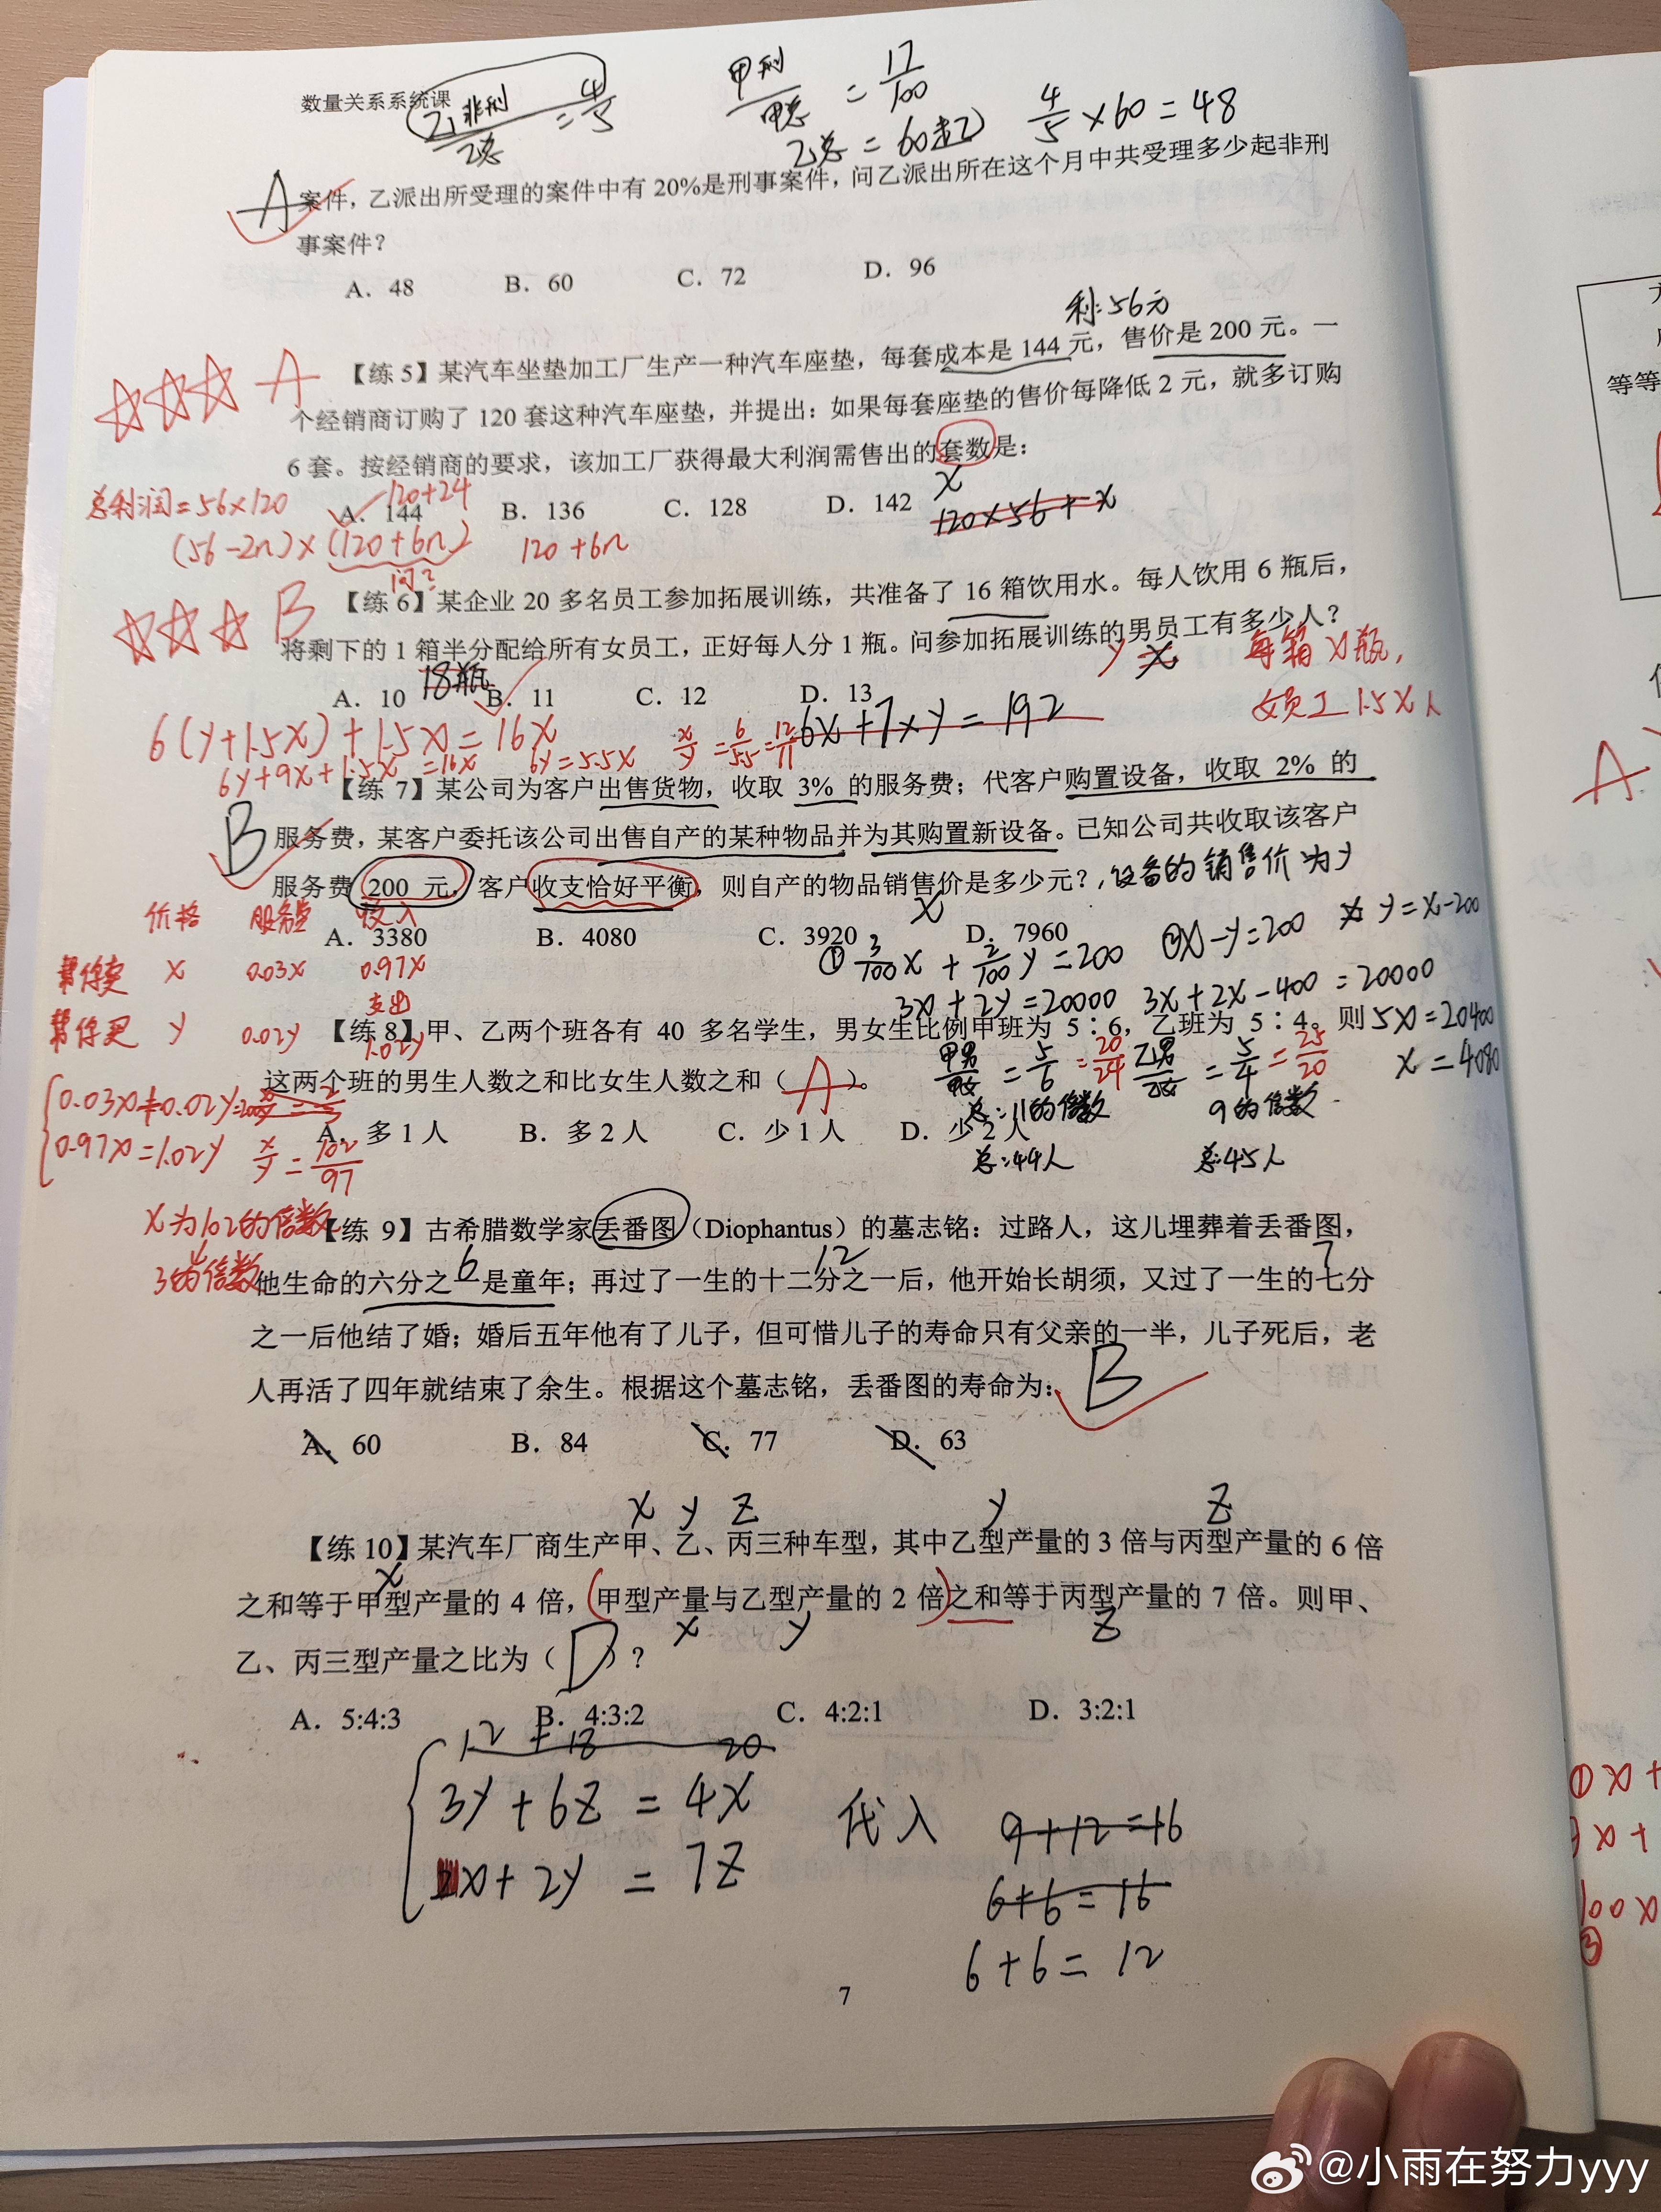 数量关系系统课
乙非刑/乙总 = 4/5
甲刑/甲总 = 17/100
乙总 = 60(起)
4/5 × 60 = 48
A
案件，乙派出所受理的案件中有 20%是刑事案件，问乙派出所在这个月中共受理多少起非刑
事案件？
A．48 B．60 C．72 D．96
利：56元
A
【练 5】某汽车坐垫加工厂生产一种汽车座垫，每套成本是 144 元，售价是 200 元。一
个经销商订购了 120 套这种汽车座垫，并提出：如果每套座垫的售价每降低 2 元，就多订购
6 套。按经销商的要求，该加工厂获得最大利润需售出的套数是：
x
总利润=56×120
120+24
A．144 B．136 C．128 D．142
120×56+x
(56-2n)×(120+6n) 120+6n
问?
B
【练 6】某企业 20 多名员工参加拓展训练，共准备了 16 箱饮用水。每人饮用 6 瓶后，
将剩下的 1 箱半分配给所有女员工，正好每人分 1 瓶。问参加拓展训练的男员工有多少人？
18瓶
y x
每箱x瓶,
女员工1.5x人
A．10 B．11 C．12 D．13
6(y+1.5x)+1.5x=16x
6y+9x+1.5x=16x
6y=5.5x x/y=6/5.5=12/11
6x+7xy=192
【练 7】某公司为客户出售货物，收取 3% 的服务费；代客户购置设备，收取 2% 的
B
服务费，某客户委托该公司出售自产的某种物品并为其购置新设备。已知公司共收取该客户
服务费 200 元，客户收支恰好平衡，则自产的物品销售价是多少元？
，设备的销售价为y
x
A．3380 B．4080 C．3920 D．7960
价格 服务费 收入
帮你卖 x 0.03x 0.97x
支出
帮你买 y 0.02y 1.02y
①3/100x + 2/100y = 200 ②x-y=200 y=x-200
3x+2y=20000 3x+2x-400=20000
则5x=20400
x=4080
【练 8】甲、乙两个班各有 40 多名学生，男女生比例甲班为 5∶6，乙班为 5∶4。
这两个班的男生人数之和比女生人数之和（ A ）。
甲男/甲女=5/6=20/24 乙男/乙女=5/4=25/20
总:11的倍数 9的倍数
A．多 1 人 B．多 2 人 C．少 1 人 D．少 2 人
总:44人 总:45人
0.03x+0.02y=200
0.97x=1.02y x/y=102/97
x为102的倍数
3的倍数
【练 9】古希腊数学家丢番图（Diophantus）的墓志铭：过路人，这儿埋葬着丢番图，
6 12 7
他生命的六分之一是童年；再过了一生的十二分之一后，他开始长胡须，又过了一生的七分
之一后他结了婚；婚后五年他有了儿子，但可惜儿子的寿命只有父亲的一半，儿子死后，老
人再活了四年就结束了余生。根据这个墓志铭，丢番图的寿命为：
B
A．60 B．84 C．77 D．63
x y z y z
【练 10】某汽车厂商生产甲、乙、丙三种车型，其中乙型产量的 3 倍与丙型产量的 6 倍
x
之和等于甲型产量的 4 倍，甲型产量与乙型产量的 2 倍之和等于丙型产量的 7 倍。则甲、
x y z
乙、丙三型产量之比为（ D ）？
A．5:4:3 B．4:3:2 C．4:2:1 D．3:2:1
12 + 18 20
3y+6z=4x
x+2y=7z
代入
9+12=16
6+6=16
6+6=12
7
@小雨在努力yyy